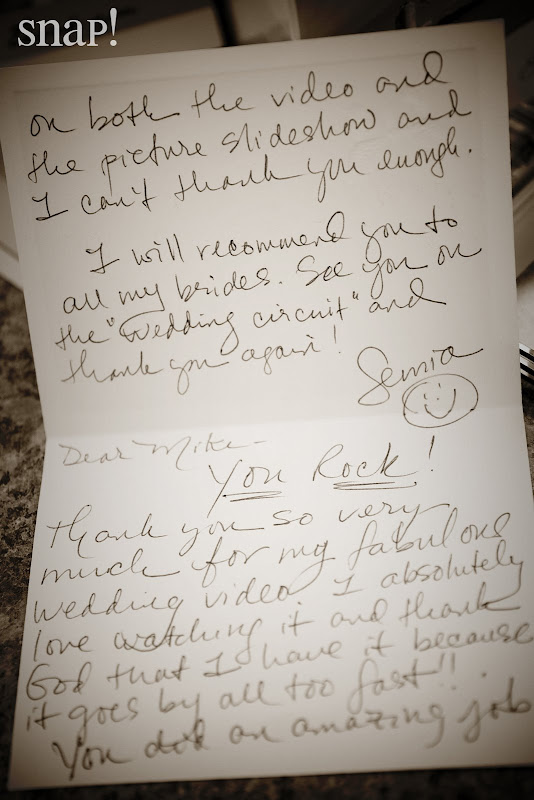 snap!
on both the video and
the picture slideshow and
I can't thank you enough.
I will recommend you to
all my brides. See you on
the "Wedding circuit" and
thank you again!
Semra
Dear Mike-
You Rock!
thank you so very
much for my fabulous
wedding video. I absolutely
love watching it and thank
God that I have it because
it goes by all too fast!!
You did an amazing job